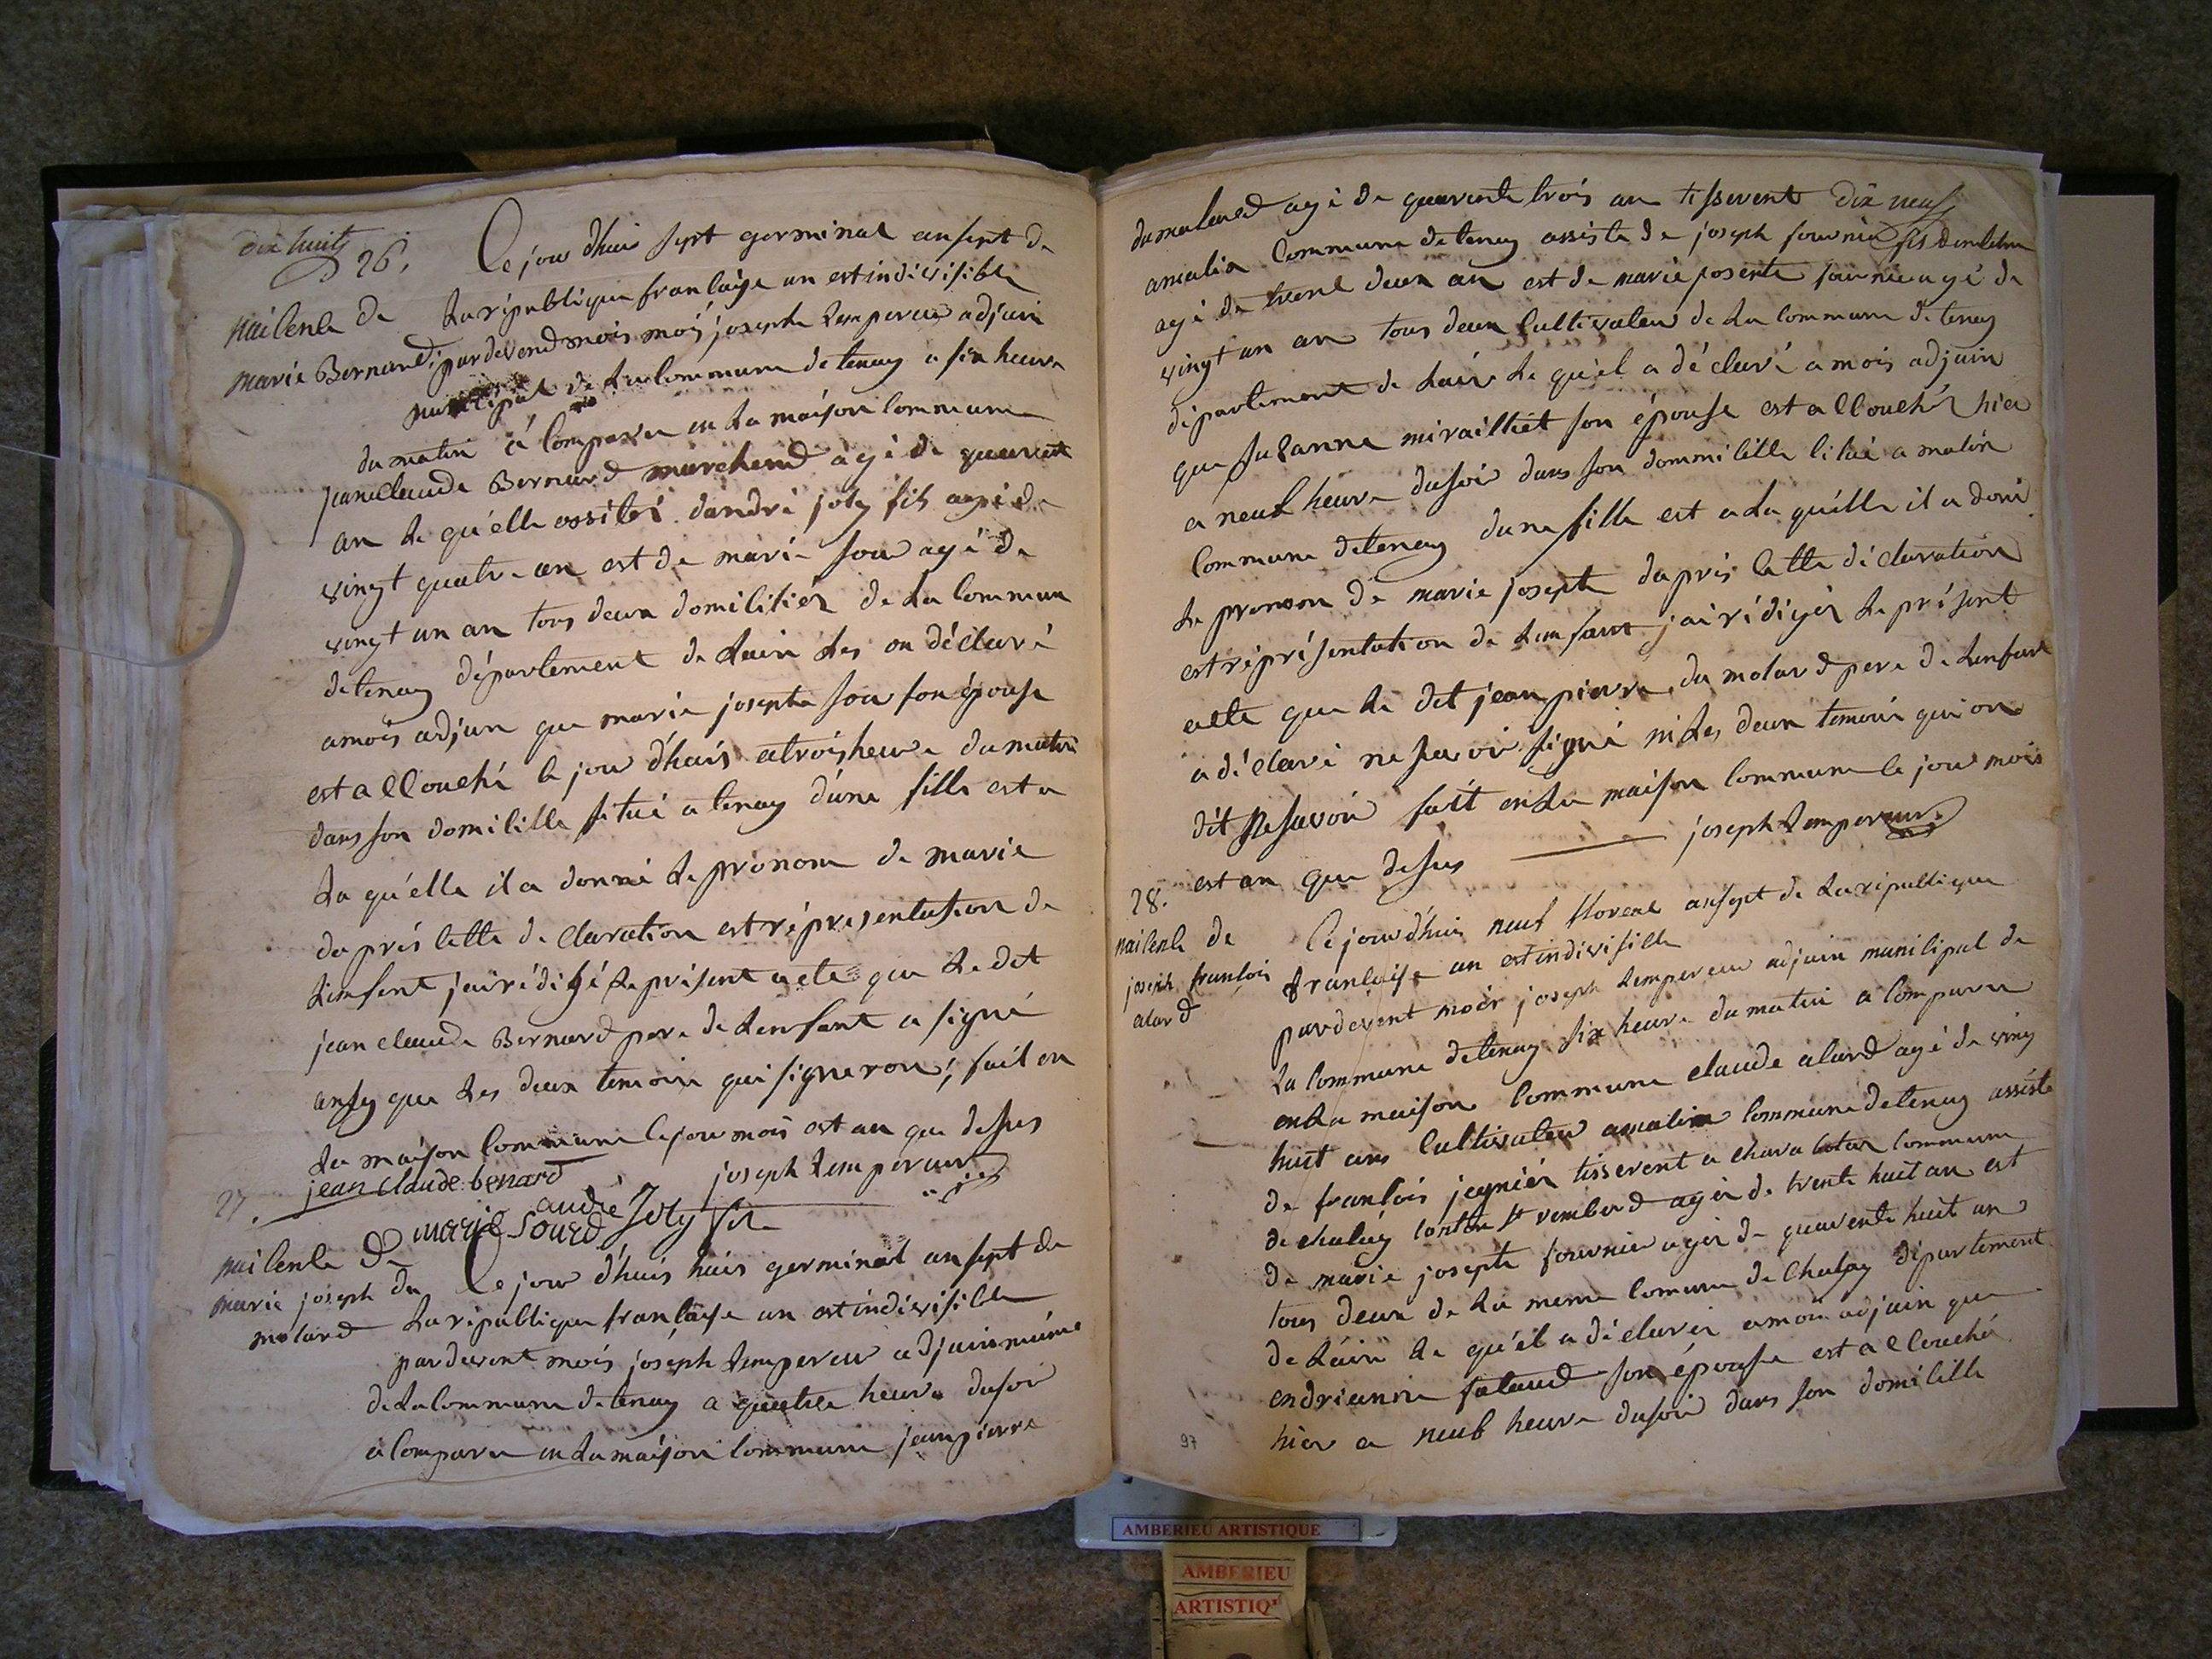 dix huits
26.
nailence de
marie Bernard
Ce jour dhuis sept germinal an sept de
La république francaise un est indivisible
pardevend mois mois joseph Lempereur adjuin
municipal de La Commune de tenay a six heure
du matin à Comparu en La maison Commune
jean Claude Bernard marchend agé de quarente
an Le quélle assisté dandré joly fils agé de
vingt quatre an est de marie sour agé de
vingt un an tous deux domiliciér de La Commune
de tenay département de Lain Les on déclaré
amois adjuin que marie josepte sour son épouse
est accouché le jour dhuis atrois heure du matin
dans son domicille situé a tenay dúne fille est a
La quélle il a donné Le pronom de marie
daprés cette déclaration est répresentation de
Lenfent jairédigé Le présent acte que Le dit
jean claude Bernard pere de Lenfant a signé
ansy que Les deux temoin qui signeron; fait en
La maison Commune le jour mois est an que desus
jean claude benard
joseph Lempereur
andré Joly fils
marie Sourd
27.
nailence de
marie joseph du
molard
Ce jour dhuis huis germinal an sept de
La républiqe française un est indivisible
pardevent mois joseph Lempereur adjuin
de La Commune de tenay a quatre heure du soir
a Comparu en La maison Commune jean pierre
dix neuf
du molard agé de quarente trois an tisserent
amalia Commune de tenay assiste de joseph fournie fis
agé de trente deux an est de marie josente fournie agé de
vingt un an tous deux Cultivateur de La Commune de tenay
département de Lain Le quél a déclaré a mois adjuin
que Suzanne miraillièt son épouse est accouchér hier
a neuf heure du soir dans son dommicille citué a matin
Commune de tenay dune fille est a La quélle il a doné
Le pronom de marie josepte daprés cette déclaration
est réprésentation de Lenfant jairédigér Le présent
acte que Le dit jean pierre du molard pere de Lenfant
a déclaré ne savoir signé ni Les deux temoin qui on
dit ne savoir fait en La maison Commune le jour mois
est an que desus
joseph Lempereur
28.
nailence de
joseph françois
alard
Ce jour dhuis neuf floreal an sept de La république
francaise un est indivisible
pardevent moir joseph Lempereur adjuin municipal de
La Commune de tenay six heure du matin a Comparu
en La maison Commune claude alard agé de ving
huit ans Cultivateur amalin Commune de tenay assiste
de françois jagniér tisserent a charabotar Commune
de chaley canton st rember d agér de trente huit an est
de marie josepte fournier agér de quarente huit an
tous deux de La meme Comune de Chaley département
de Láin Le quél a déclarér a mois adjuin que
endrienne falaud son épouse est accouché
hier a neuf heure du soir dans son domicille
97
AMBERIEU ARTISTIQUE
AMBERIEU
ARTISTIQ'